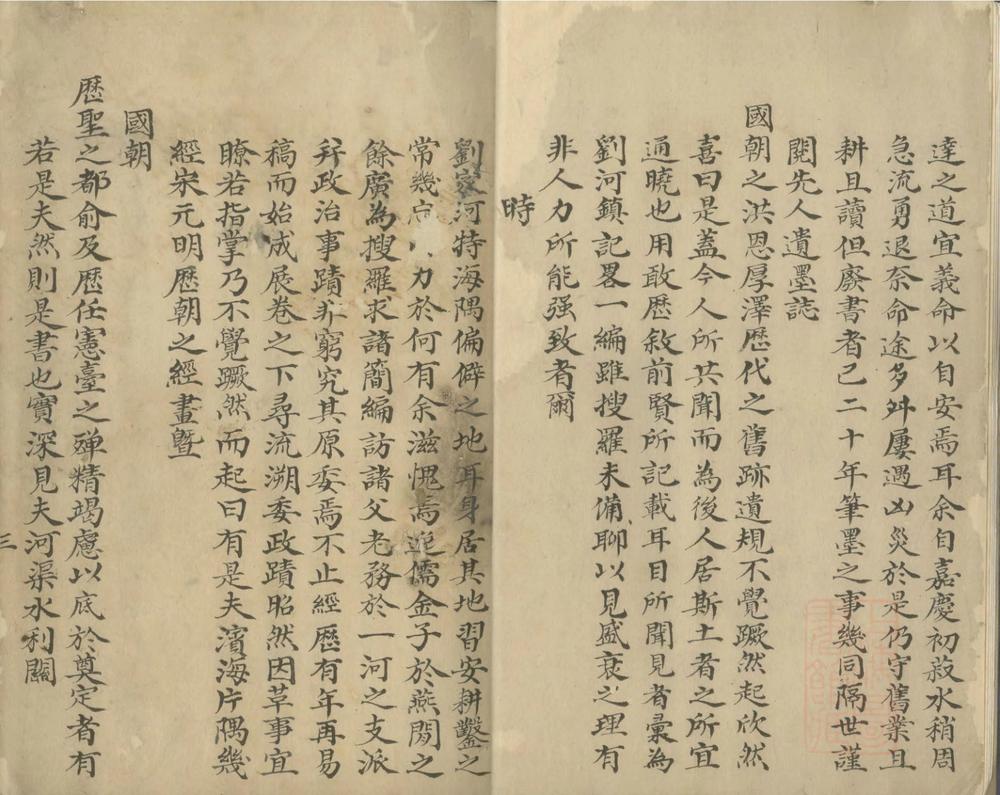 達之道宜義命以自安焉耳余自嘉慶初菽水稍周
急流勇退奈命途多舛屢遇凶災於是仍守舊業且
耕且讀但廢書者已二十年筆墨之事幾同隔世謹
閱先人遺墨誌
國朝之洪恩厚澤歷代之舊跡遺規不覺蹶然起欣然
喜曰是蓋今人所共聞而為後人居斯土者之所宜
通曉也用敢歷敘前賢所記載耳目所聞見者彙為
劉河鎮記畧一編雖搜羅未備聊以見盛衰之理有
非人力所能强致者爾
時
劉家河特海隅偏僻之地耳身居其地習安耕鑿之
常幾忘力於何有余滋愧焉迩儒金子於燕閒之
餘廣為搜羅求諸簡編訪諸父老務於一河之支派
并政治事蹟羿窮究其原委焉不止經歷有年再易
稿而始成展卷之下尋流溯委政蹟昭然因草事宜
瞭若指掌乃不覺蹶然而起曰有是夫濱海片隅幾
經宋元明歷朝之經畫曁
國朝
歷聖之都俞及歷任憲臺之殫精竭慮以底於奠定者有
若是夫然則是書也實深見夫河渠水利關
三